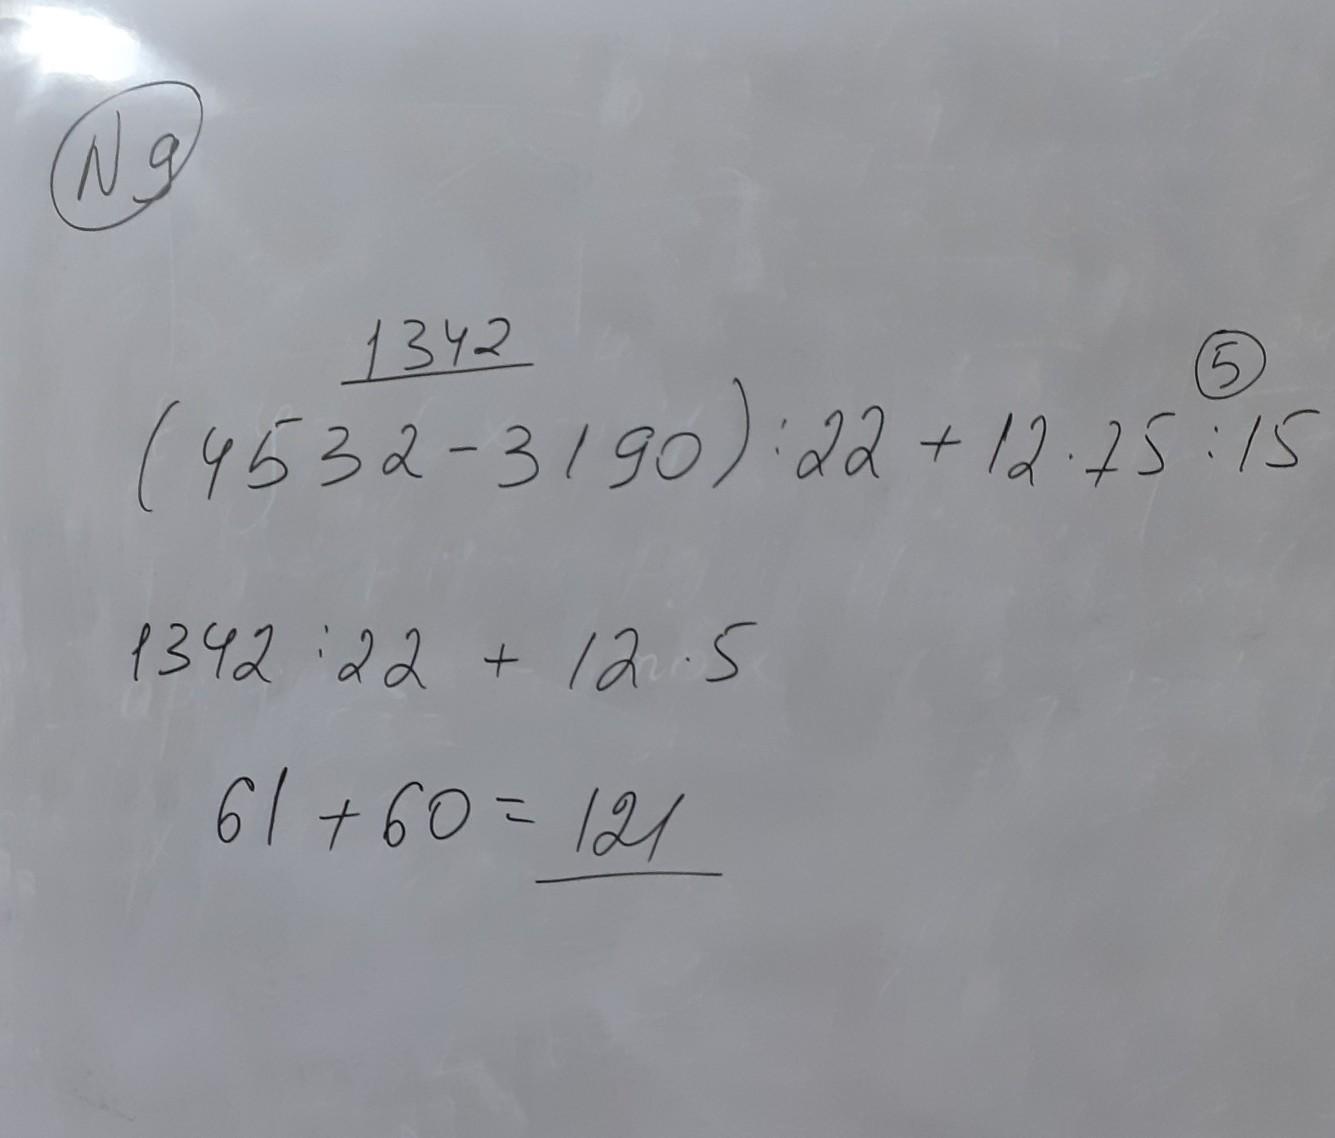 N 9
1342
5
(4532-3190):22 + 12·75:15
1342:22 + 12·5
61+60= 121